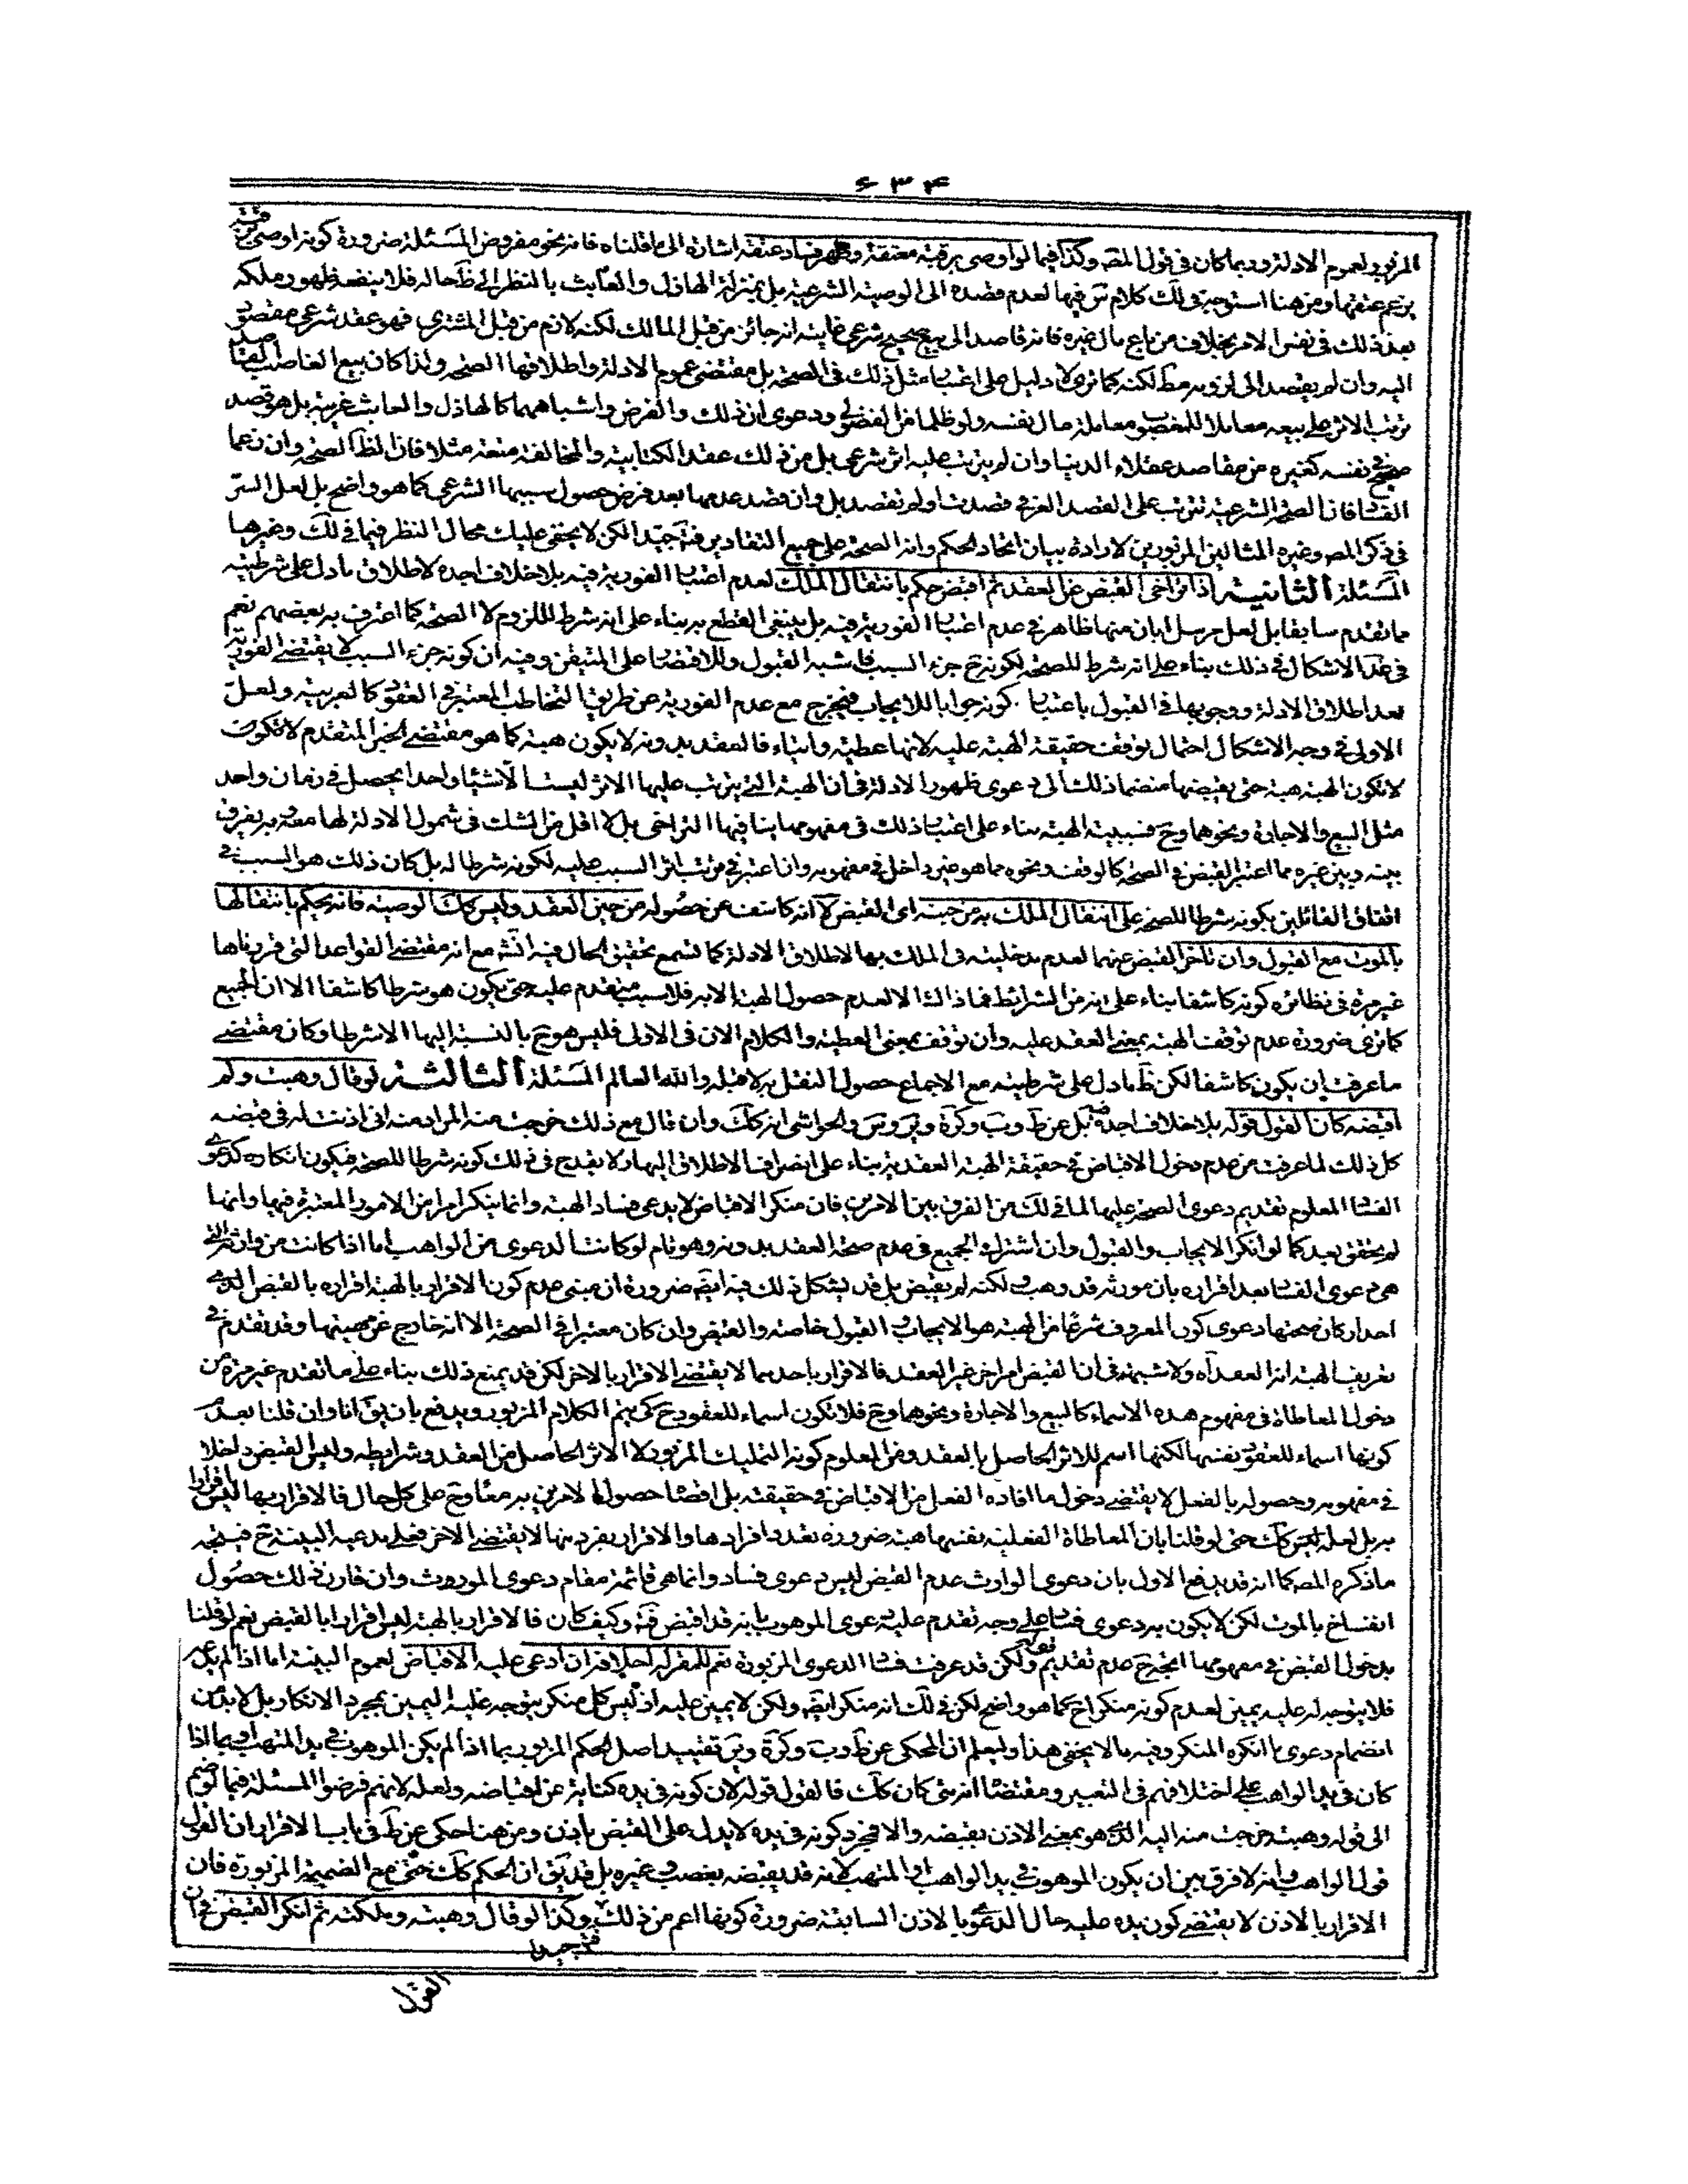 ۶۳۴
المزبور لعموم الادلة وربما كان في قول المصه وكذا فيما لو اوصى برقبة معتقة وظهر فساد عتقه اشارة الى ما قلناه فانه نحو مفروض المسئلة ضرورة كونه اوصى
بزعم عتقها ومن هنا استوجه في لك كلام س فيها لعدم قصده الى الوصية الشرعية بل بمنزلة الهاذل والعابث بالنظر الى ظ حاله فلا ينفعه ظهور ملكه
بعد ذلك في نفس الامر بخلاف من باع مال غيره فانه قاصد الى بيع صحيح شرعي غايته انه جائز من قبل المالك لكنه لازم من قبل المشتري فهو عقد شرعي مقصود
اليه وان لم يقصد الى لزومه مط لكنه كما ترى لا دليل على اعتبار مثل ذلك في الصحة بل مقتضى عموم الادلة واطلاقها الصحة ولذا كان بيع الغاصب
ترتب الاثر على بيعه معاملا للمغصوب معاملة مال نفسه ولو ظلما من الفضولي ودعوى ان ذلك والفرض واشباههما كالهاذل والعابث غريبة بل هو قصد
صحيح في نفسه كغيره من مقاصد عقلاء الدنيا وان لم يترتب عليه اثر شرعي بل من ذلك عقد الكتابية والمخالفة متعة مثلا فان الظ الصحة وان زعما
الفسا فان الصحة الشرعية تترتب على القصد العرفي قصدت او لم تقصد بل وان قصد عدمها بعد فرض حصول سببها الشرعي كما هو واضح بل لعل الستر
في ذكر المصه وغيره المثالين المزبورين لارادة بيان اتحاد الحكم وانه الصحة على جميع التقادير فت جيدا لكن لا يخفى عليك محال النظر فيما في لك وغيرها
المسئلة الثانية اذا تراخى القبض عن العقد ثم اقبض حكم بانتقال الملك لعدم اعتبار الفورية فيه بلا خلاف اجده لاطلاق ما دل على شرطيته
مما تقدم سابقا بل لعل مرسل ابان منها ظاهر في عدم اعتبار الفورية فيه بل ينبغي القطع به بناء على انه شرط للزوم لا الصحة كما اعترف به بعضهم نعم
في عد الاشكال في ذلك بناء على انه شرط للصحة لكونه ح جزء السبب فاشبه القبول وللاقتصار على المتيقن وفيه ان كونه جزء السبب لا يقتضى الفورية
بعد اطلاق الادلة ووجوبها في القبول باعتبار كونه جوابا للايجاب فيخرج مع عدم الفورية عن طريقة التخاطب المعتبر في العقود كالعربية ولعل
الاولى في وجه الاشكال احتمال توقف حقيقة الهبة عليه لانها عطية وايتاء فالعقد بدونه لا يكون هبة كما هو مقتضى الخبر المتقدم لا تكون
لا تكون الهبة هبة حتى يقبضها منضما ذلك الى دعوى ظهور الادلة في ان الهبة التي يترتب عليها الاثر ليست الا شيئا واحدا يحصل في زمان واحد
مثل البيع والاجارة ونحوهما وح فسببية الهبة بناء على اعتبار ذلك في مفهومها ينافيها التراخي بل لا اقل من الشك في شمول الادلة لها معه وبه يفرق
بينه وبين غيره مما اعتبر القبض في الصحة كالوقف ونحوه مما هو غير داخل في مفهومه وان اعتبر في ترتب اثر السبب عليه لكونه شرطا له بل كان ذلك هو السبب في
اتفاق القائلين بكونه شرطا للصحة على انتقال الملك به من حينه اى القبض لا انه كاشف عن حصوله من حين العقد وليس كك الوصية فانه يحكم بانتقالها
بالموت مع القبول وان تاخر القبض عنهما لعدم مدخليته في الملك بها لاطلاق الادلة كما تسمع تحقيق الحال فيه انش مع انه مقتضى القواعد التي قررناها
غير مرة في نظائره كونه كاشفا بناء على انه من الشرائط فما ذا الا لعدم حصول الهبة الا به فلا سبب متقدم عليه حتى يكون هو شرطا كاشفا الا ان الجميع
كما ترى ضرورة عدم توقف الهبة بمعنى العقد عليه وان توقف بمعنى العطية والكلام الان في الاولى فليس هو ح بالنسبة اليها الا شرطا وكان مقتضى
ما عرفت ان يكون كاشفا لكن ظ ما دل على شرطيته مع الاجماع حصول النقل به لا قبله والله العالم المسئلة الثالثة لو قال وهبت ولم
اقبضه كان القول قوله بلا خلاف اجده بل عن ط وب وكرة وير وس والحواشي انه كك وان قال مع ذلك خرجت منه المراد منه اني اذنت له في قبضه
كل ذلك لما عرفت من عدم دخول الاقباض في حقيقة الهبة العقدية بناء على انصراف الاطلاق اليها ولا يقدح في ذلك كونه شرطا للصحة فيكون انكاره كدعوى
الفسا المعلوم تقديم دعوى الصحة عليها لما في لك من الفرق بين الامرين فان منكر الاقباض لا يدعى فساد الهبة وانما ينكر امرا من الامور المعتبرة فيها وانها
لم يتحقق بعد كما لو انكر الايجاب والقبول وان اشترك الجميع في عدم صحة العقد بدونه وهو تام لو كانت الدعوى من الواهب اما اذا كانت من وارثه التي
هي دعوى الفسا بعد اقراره بان مورثه قد وهب لكنه لم يقبض بل قد يشكل ذلك فيه ايضه ضرورة ان مبنى عدم كون الاقرار بالهبة اقراره بالقبض الذى
احد اركان صحتها دعوى كون المعروف شرعا من الهبة هو الايجاب والقبول خاصة والقبض وان كان معتبرا في الصحة الا انه خارج عن ماهيتها وقد تقدم في
تعريف الهبة انه العقد آه ولا شبهة في ان القبض امر اخر غير العقد فالاقرار باحدهما لا يقتضى الاقرار بالاخر لكن قد يمنع ذلك بناء على ما تقدم غير مرة من
دخول المعاطاة في مفهوم هذه الاسماء كالبيع والاجارة ونحوهما وح فلا تكون اسماء للعقود ح كى يتم الكلام المزبور ويدفع بان يق انا وان قلنا بعدم
كونها اسماء للعقود نفسها لكنها اسم للاثر الحاصل بالعقد ومن المعلوم كونه التمليك المزبور لا الاثر الحاصل من العقد وشرايطه وليس القبض داخلا
في مفهومه وحصوله بالفعل لا يقتضى دخول ما افاده الفعل من الاقباض في حقيقته بل اقصا حصول الامرين به معا وح على كل حال فالاقرار بها ليس اقرارا
به بل لعله ليس كك حتى لو قلنا بان المعاطاة الفعلية بنفسها هبة ضرورة تعدد افرادها والاقرار بفرد منها لا يقتضى الاخر فعلى مدعيه البينة ح فيتجه
ما ذكره المصه كما انه قد يدفع الاول بان دعوى الوارث عدم القبض ليس دعوى فساد وانما هي قائمة مقام دعوى الموروث وان قارن ذلك حصول
انفساخ بالموت لكن لا يكون به دعوى فسا على وجه تقدم عليه دعوى الموهوب بانه قد اقبض فت وكيف كان فالاقرار بالهبة ليس اقرارا بالقبض نعم لو قلنا
بدخول القبض في مفهومها اتجه ح عدم تقديم قوله ولكن قد عرفت فسا الدعوى المزبورة نعم للمقر له احلافه ان ادعى عليه الاقباض لعموم البينة اما اذا لم يدع
فلا يتوجه له عليه يمين لعدم كونه منكرا ح كما هو واضح لكن في لك انه منكر ايضه ولكن لا يمين عليه اذ ليس كل منكر يتوجه عليه اليمين بمجرد الانكار بل لابد من
انضمام دعوى ما انكره المنكر وفيه ما لا يخفى هذا وليعلم ان المحكى عن ط وب وكرة وير تقييد اصل الحكم المزبور بما اذا لم يكن الموهوب في يد المتهب او بما اذا
كان في يد الواهب على اختلافهم في التعبير ومقتضا انه متى كان كك فالقول قوله لان كونه في يده كناية عن اقباضه ولعله لانهم فرضوا المسئلة فيما لو ضم
الى قوله وهبته خرجت منه اليه الذى هو بمعنى الاذن بقبضه والا فمجرد كونه في يده لا يدل على القبض باذن ومن هنا حكى عن ط في باب الاقرار ان القول
قول الواهب وانه لا فرق بين ان يكون الموهوب في يد الواهب او المتهب لانه قد يقبضه بغصب وغيره بل قد يق ان الحكم كك حتى مع الضميمة المزبورة فان
الاقرار بالاذن لا يقتضى كون يده عليه حال الدعوى بالاذن السابقة ضرورة كونها اعم من ذلك وكذا لو قال وهبته وملكته ثم انكر القبض
فت جيدا
القول